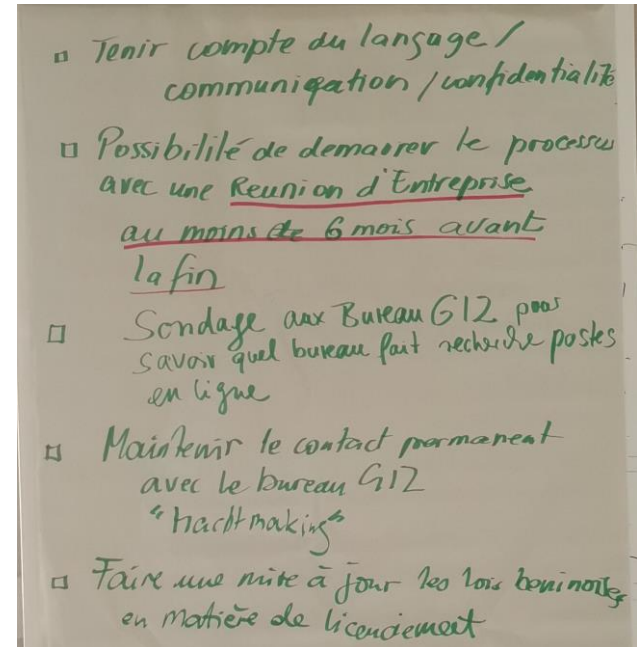 Tenir compte du langage /
communication / confidentialité
Possibilité de demarrer le processus
avec une Reunion d'Entreprise
au moins de 6 mois avant
la fin
Sondage aux Bureau G12 pour
savoir quel bureau fait recherche postes
en ligne
Maintenir le contact permanent
avec le bureau G12
Faire une mise à jour les lois beninoises
en matière de licenciement